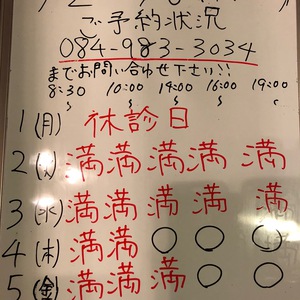 ご予約状況
084-983-3034
までお問い合わせ下さい!!
8:30 10:00 14:00 16:00 19:00
~ ~ ~ ~ ~
1(月) 休診日
2(火) 満 満 満 満 満
3(水) 満 満 満 満 満
4(木) 満 満 ○ ○ ○
5(金) 満 満 満 ○ ○